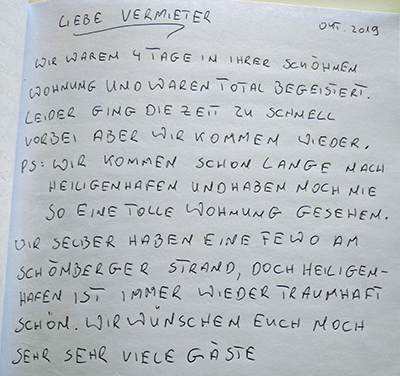 LIEBE VERMIETER
OKT. 2019
WIR WAREN 4 TAGE IN IHRER SCHÖHNEN
WOHNUNG UND WAREN TOTAL BEGEISTERT.
LEIDER GING DIE ZEIT ZU SCHNELL
VORBEI ABER WIR KOMMEN WIEDER.
PS: WIR KOMMEN SCHON LANGE NACH
HEILIGENHAFEN UND HABEN NOCH NIE
SO EINE TOLLE WOHNUNG GESEHEN.
WIR SELBER HABEN EINE FEWO AM
SCHÖMBERGER STRAND, DOCH HEILIGEN-
HAFEN IST IMMER WIEDER TRAUMHAFT
SCHÖN. WIR WÜNSCHEN EUCH NOCH
SEHR SEHR VIELE GÄSTE